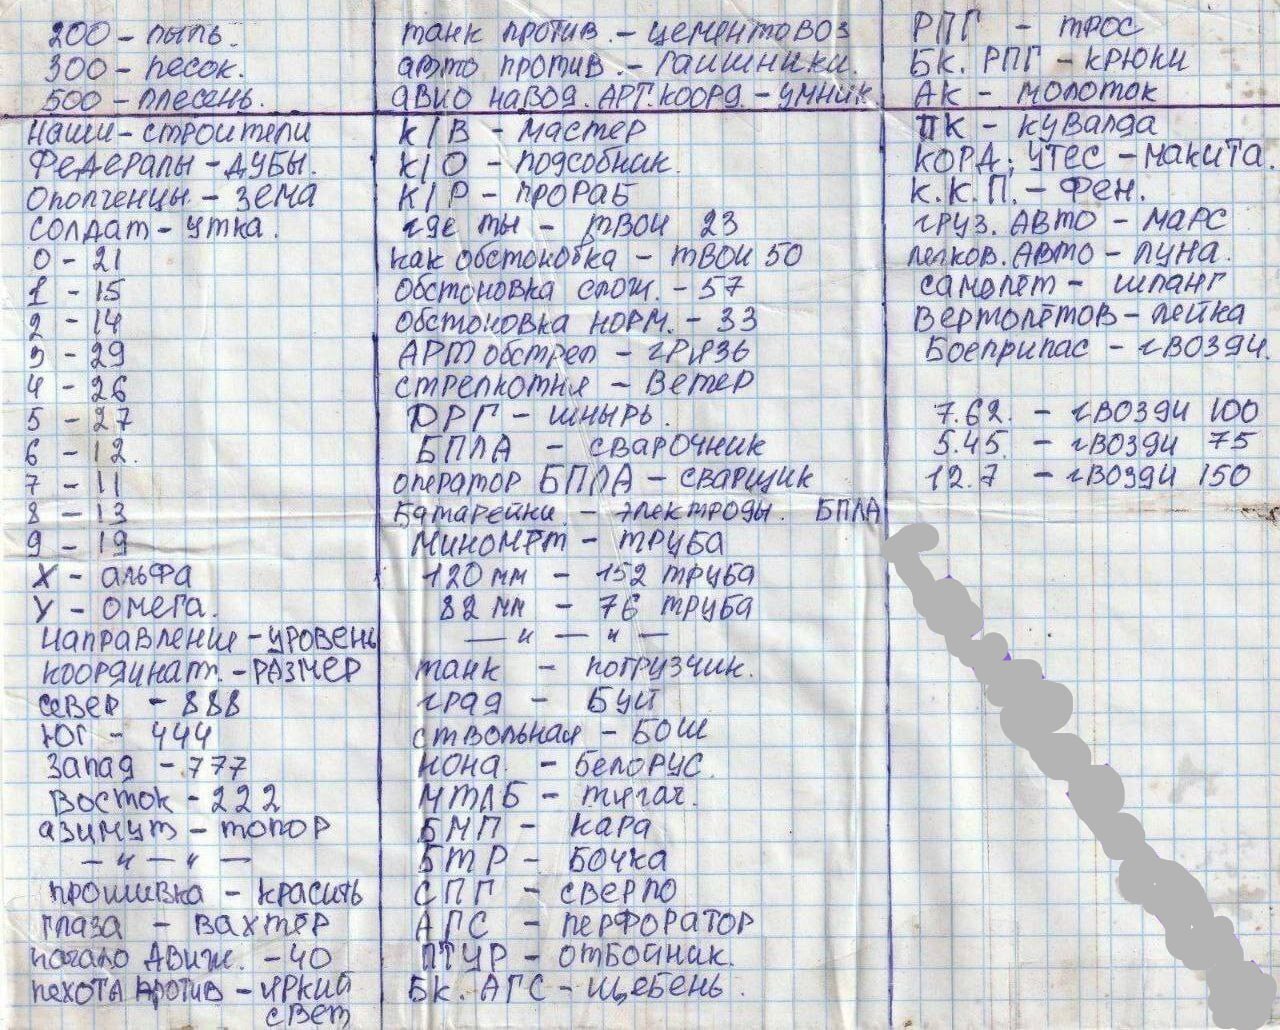 200 - пыль.
300 - песок.
500 - плесень.
Наши - строители
Федералы - дубы.
Ополченцы - зема
Солдат - утка.
0 - 21
1 - 15
2 - 14
3 - 29
4 - 26
5 - 27
6 - 12.
7 - 11
8 - 13
9 - 19
X - альфа
У - омега.
направление - уровень
координат. - РАЗМЕР
север - 888
Юг - 444
Запад - 777
Восток - 222
азимут - топор
— " — " —
прошивка - красить
глаза - вахтёр
начало движ. - 40
пехота против - яркий
свет
танк против. - цементовоз
авто против. - гаишники.
авио навод. арт. коорд - умник
К/В - мастер
К/О - подсобник.
К/Р - прораб
где ты - твои 23
как обстоновка - твои 50
Обстоновка слож. - 57
Обстоновка норм. - 33
АРТ обстрел - грязь
стрелкотня - ветер
ДРГ - шнырь.
БПЛА - сварочник
оператор БПЛА - сварщик
Батарейки - электроды. БПЛА
Миномёт - труба
120 мм - 152 труба
82 мм - 76 труба
— " — " —
танк - погрузчик.
град - БУЙ
ствольная - БОШ
нона. - белорус.
МТЛБ - тягач.
БМП - кара
БТР - Бочка
СПГ - сверло
АГС - перфоратор
ПТУР - отбойник.
Бк. АГС - щебень.
РПГ - трос
Бк. РПГ - крюки
АК - молоток
ПК - кувалда
КОРД; УТЕС - макита.
К.К.П. - Фен.
груз. АВТО - МАРС
легков. АВТО - луна.
самолёт - шланг
Вертолётов - лейка
Боеприпас - гвозди.
7.62. - гвозди 100
5.45. - гвозди 75
12.7 - гвозди 150